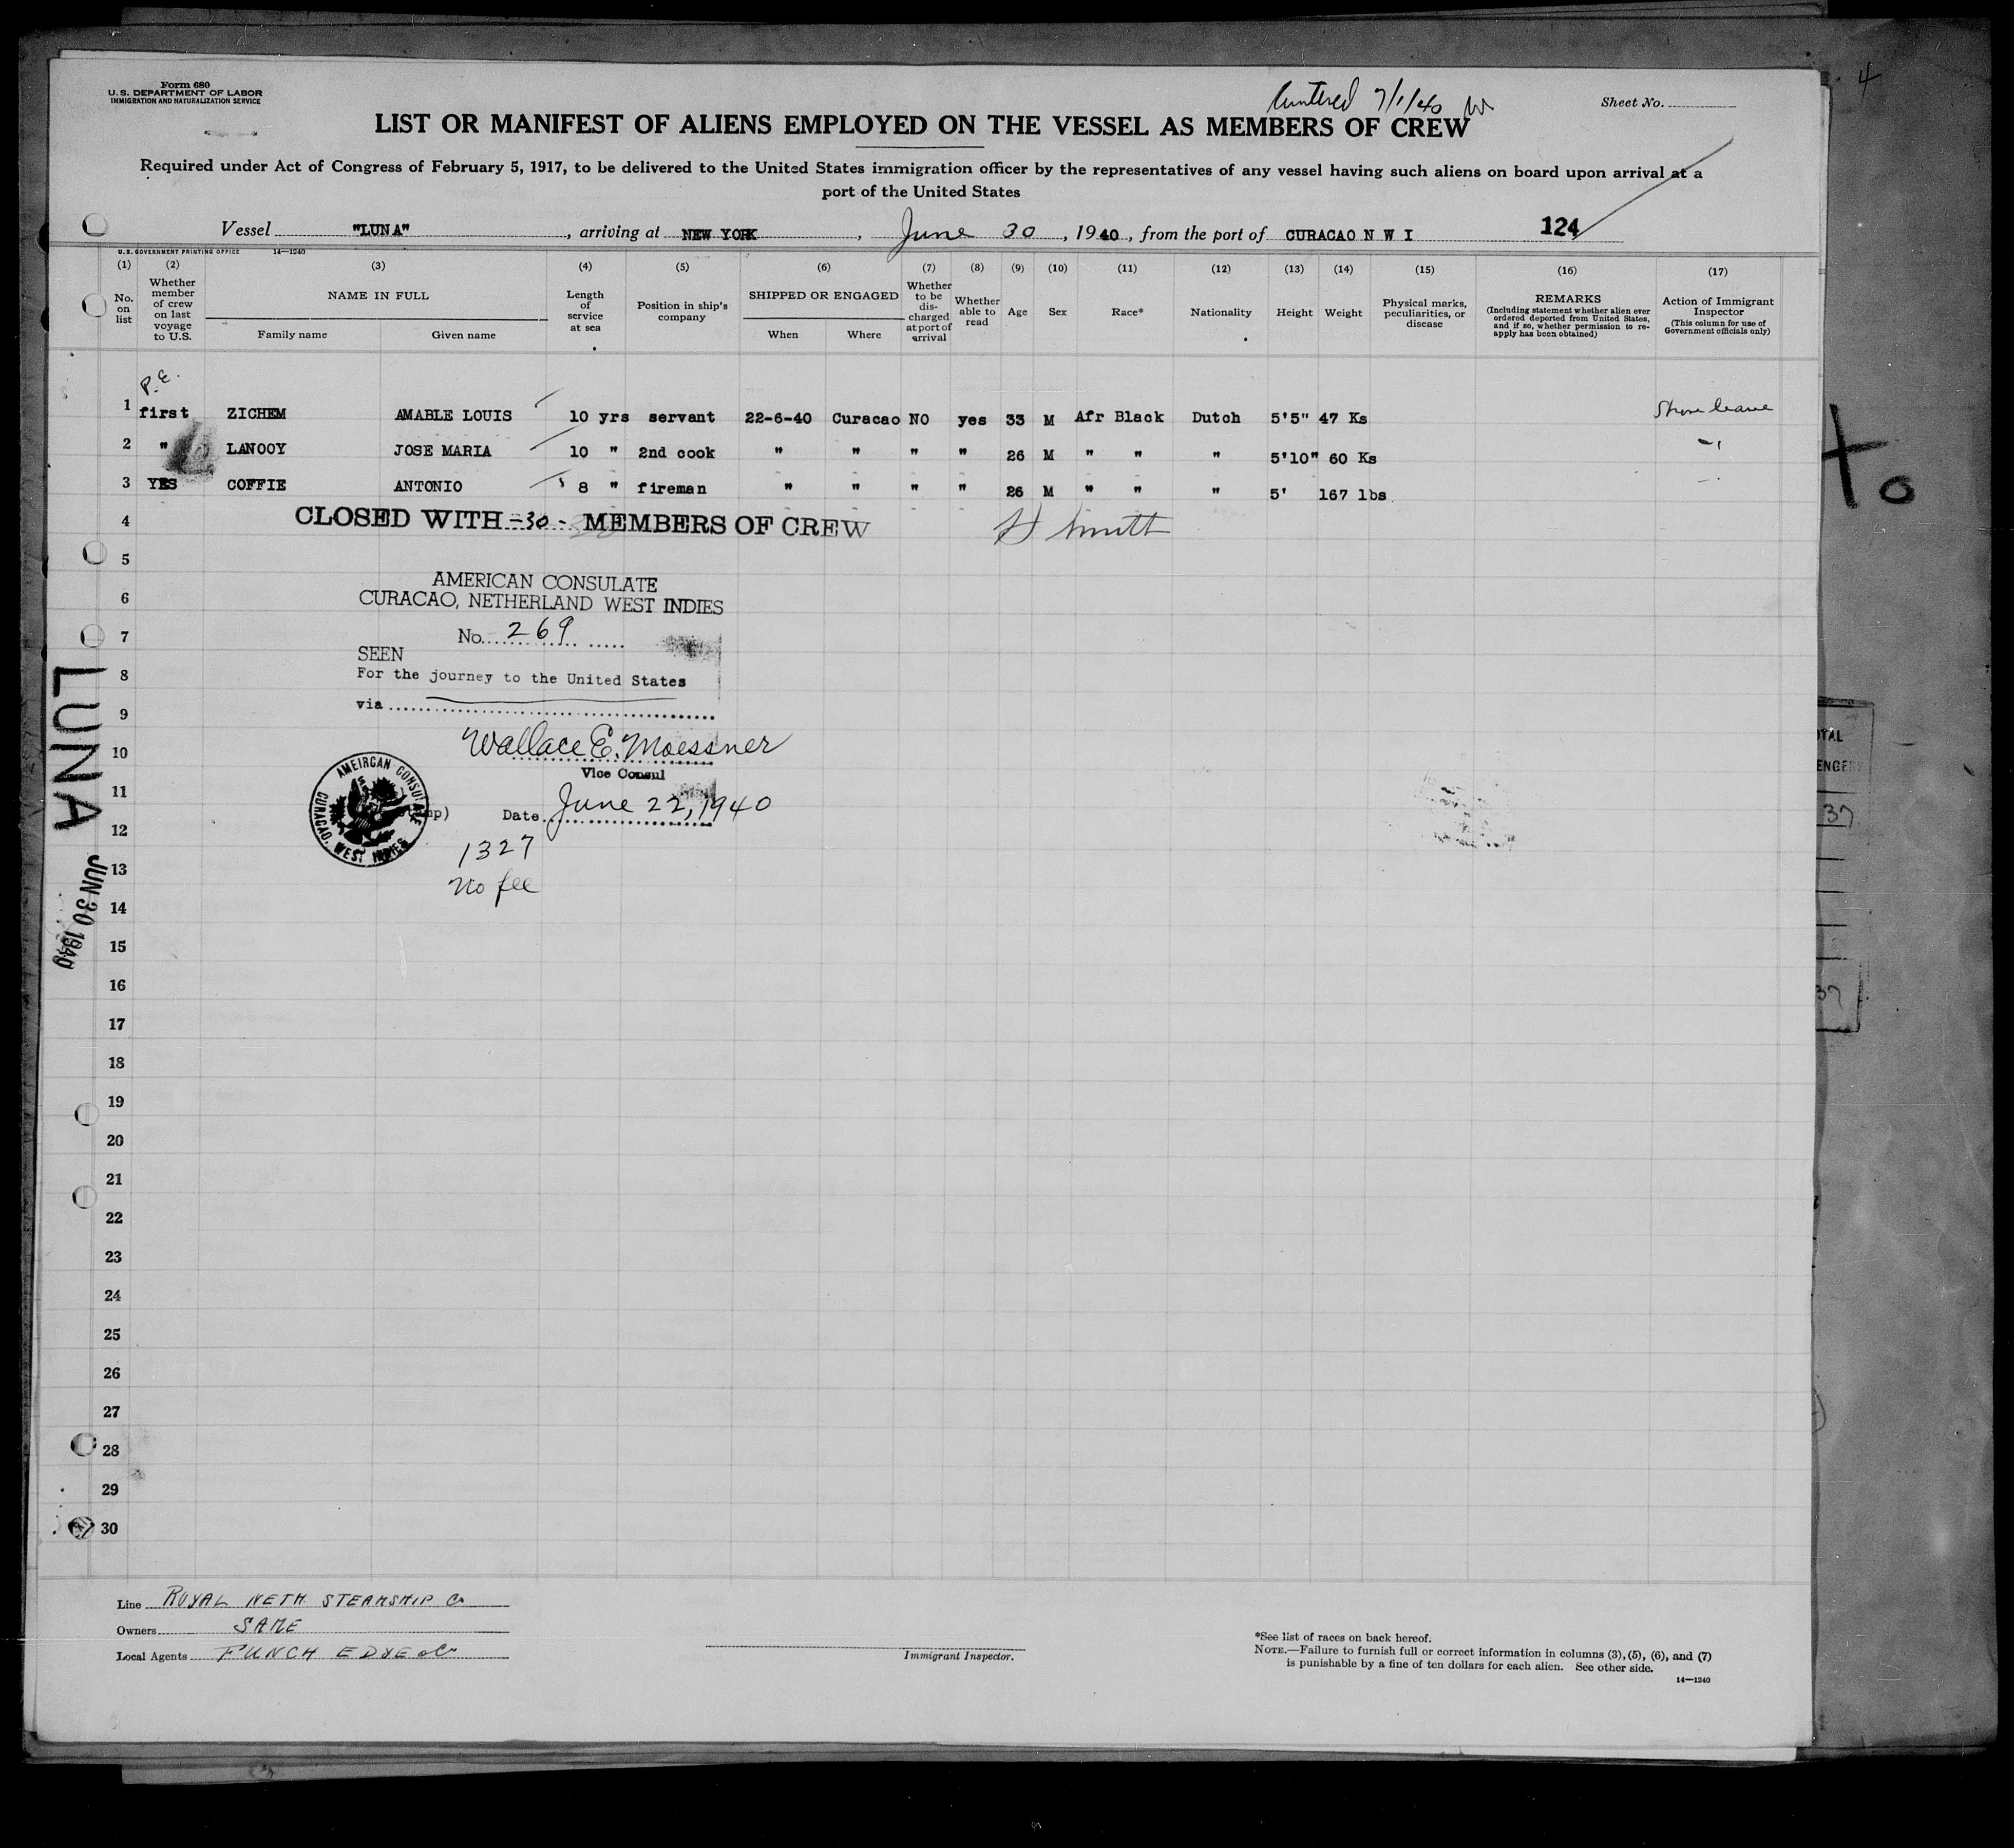 Form 680
U. S. DEPARTMENT OF LABOR
IMMIGRATION AND NATURALIZATION SERVICE
7/1/40
Sheet No.
4
LIST OR MANIFEST OF ALIENS EMPLOYED ON THE VESSEL AS MEMBERS OF CREW
Required under Act of Congress of February 5, 1917, to be delivered to the United States immigration officer by the representatives of any vessel having such aliens on board upon arrival at a
port of the United States
Vessel "LUNA", arriving at NEW YORK, June 30, 1940, from the port of CURACAO N W I 124
U. S. GOVERNMENT PRINTING OFFICE 14—1240
(1) (2) (3) (4) (5) (6) (7) (8) (9) (10) (11) (12) (13) (14) (15) (16) (17)
No. on list
Whether member of crew on last voyage to U.S.
NAME IN FULL
Family name
Given name
Length of service at sea
Position in ship's company
SHIPPED OR ENGAGED
When
Where
Whether to be discharged at port of arrival
Whether able to read
Age
Sex
Race*
Nationality
Height
Weight
Physical marks, peculiarities, or disease
REMARKS
(Including statement whether alien ever ordered deported from United States, and if so, whether permission to reapply has been obtained)
Action of Immigrant Inspector
(This column for use of Government officials only)
P.E.
1 first ZICHEM AMABLE LOUIS 10 yrs servant 22-6-40 Curacao NO yes 33 M Afr Black Dutch 5'5" 47 Ks Shore leave
2 " LANOOY JOSE MARIA 10 " 2nd cook " " " " 26 M " " " 5'10" 60 Ks "
3 YES COFFIE ANTONIO 8 " fireman " " " " 26 M " " " 5' 167 lbs
4 CLOSED WITH -30- MEMBERS OF CREW H Smitt
5
AMERICAN CONSULATE
6 CURACAO, NETHERLAND WEST INDIES
7 No. 269
SEEN
8 For the journey to the United States
9 via
10 Wallace E. Moessner
Vice Consul
11
Date June 22, 1940
AMEIRCAN CONSULATE
CURACAO, WEST INDIES
12
1327
13
No fee
14
15
16
17
18
19
20
21
22
23
24
25
26
27
28
29
30
LUNA
JUN 30 1940
to
TAL
ENGERS
37
37
Line ROYAL NETH. STEAMSHIP Co
Owners SAME
Local Agents FUNCH EDYE & Co
Immigrant Inspector.
*See list of races on back hereof.
NOTE.—Failure to furnish full or correct information in columns (3), (5), (6), and (7)
is punishable by a fine of ten dollars for each alien. See other side.
14—1240